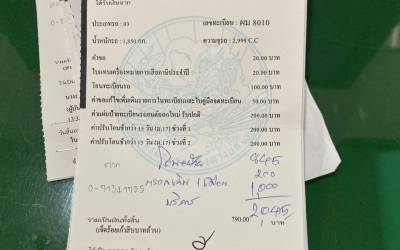 ได้รับเงินจาก
ประเภทรถ : 03 เลขทะเบียน : ผม 8010
น้ำหนักรถ : 1,850 กก. ความจุรถ : 2,999 C.C
ค่าขอ 20.00 บาท
ใบแทนเครื่องหมายการเสียภาษีประจำปี 20.00 บาท
โอนทะเบียนรถ 100.00 บาท
ค่าขอแก้ไขเพิ่มเติมรายการในทะเบียนและใบคู่มือจดทะเบียน 50.00 บาท
ค่าแผ่นป้ายทะเบียนรถยนต์ออกใหม่ รับปกติ 200.00 บาท
ค่าปรับโอนช้ากว่า 15 วัน (ม.17) ช่วงที่ 1 200.00 บาท
ค่าปรับโอนช้ากว่า 15 วัน (ม.17) ช่วงที่ 2 200.00 บาท
845
200
1000
2045
รวมเป็นเงินทั้งสิ้น 790.00 บาท
(เจ็ดร้อยเก้าสิบบาทถ้วน)